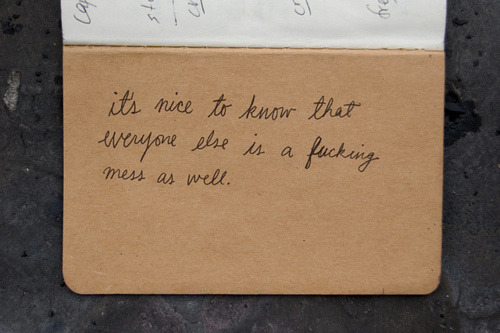 it's nice to know that
everyone else is a fucking
mess as well.